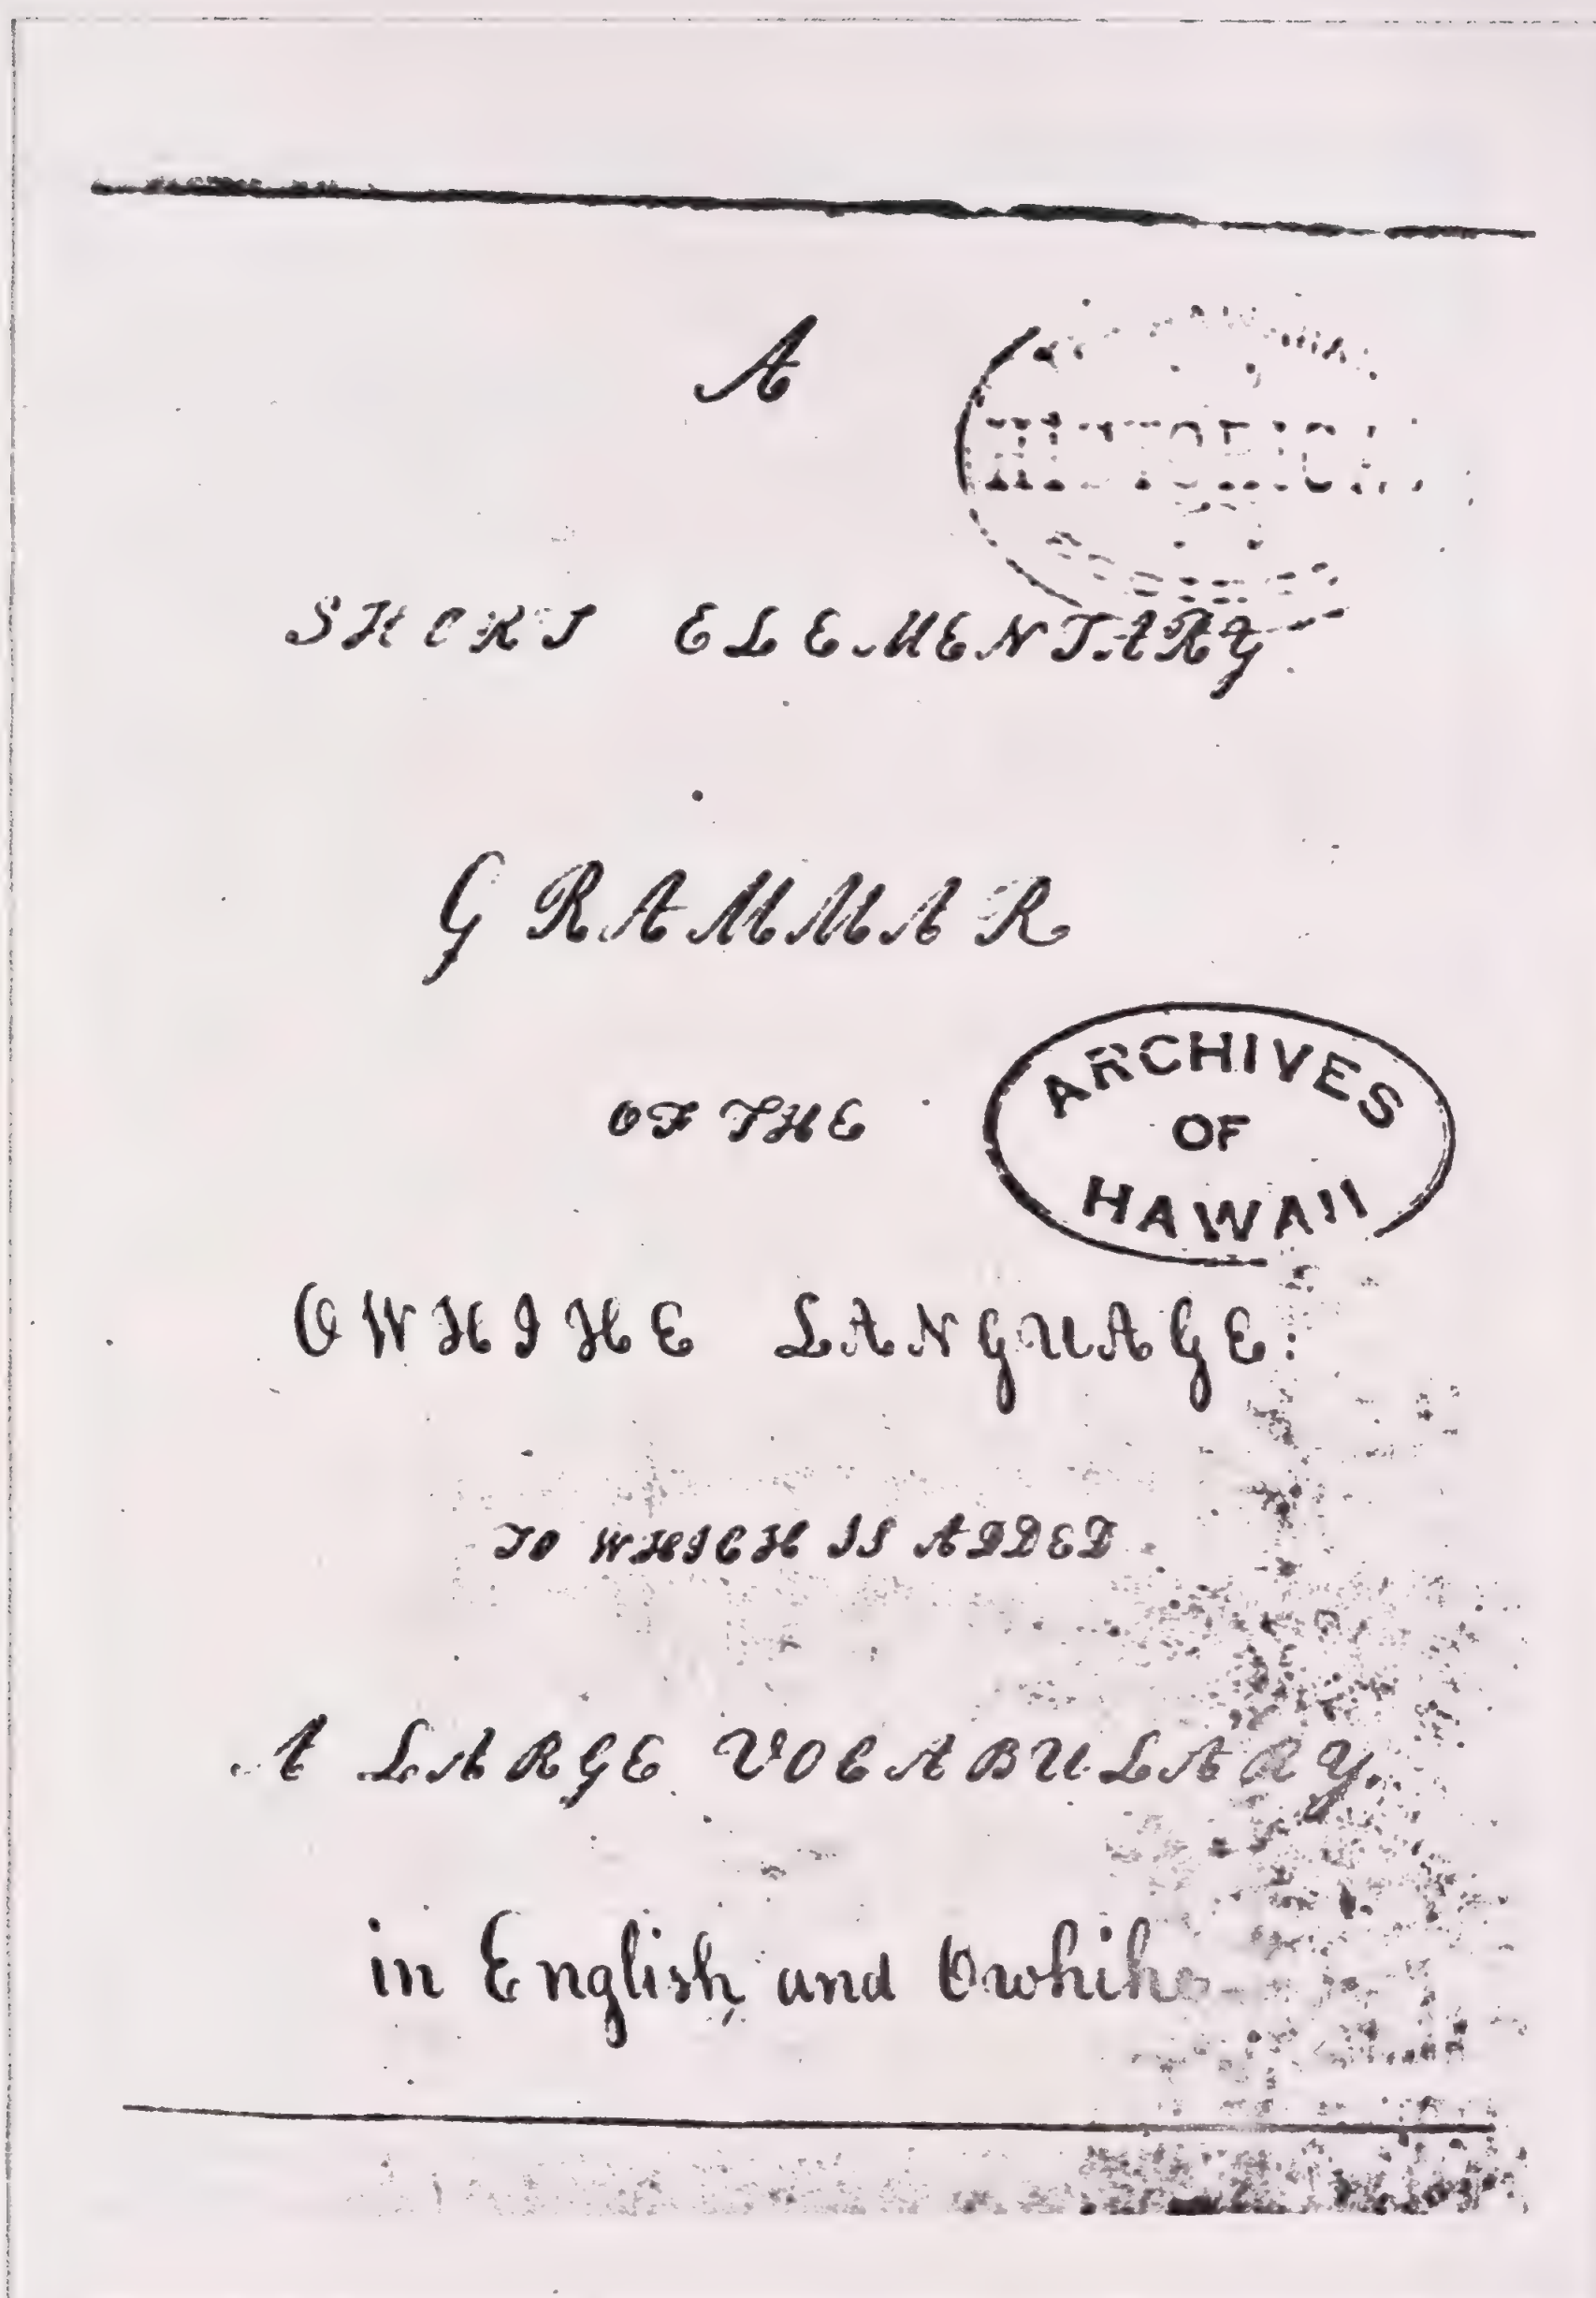 A
SHORT ELEMENTARY
GRAMMAR
OF THE
ARCHIVES
OF
HAWAII
OWHIHE LANGUAGE:
TO WHICH IS ADDED
A LARGE VOCABULARY
in English and Owhihe